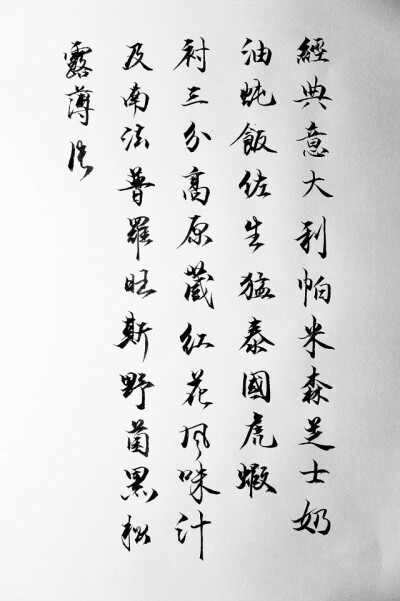 經典意大利帕米森芝士奶
油炖飯佐生猛泰國虎蝦
衬三分高原藏红花风味汁
及南法普羅旺斯野菌黑松
露薄片